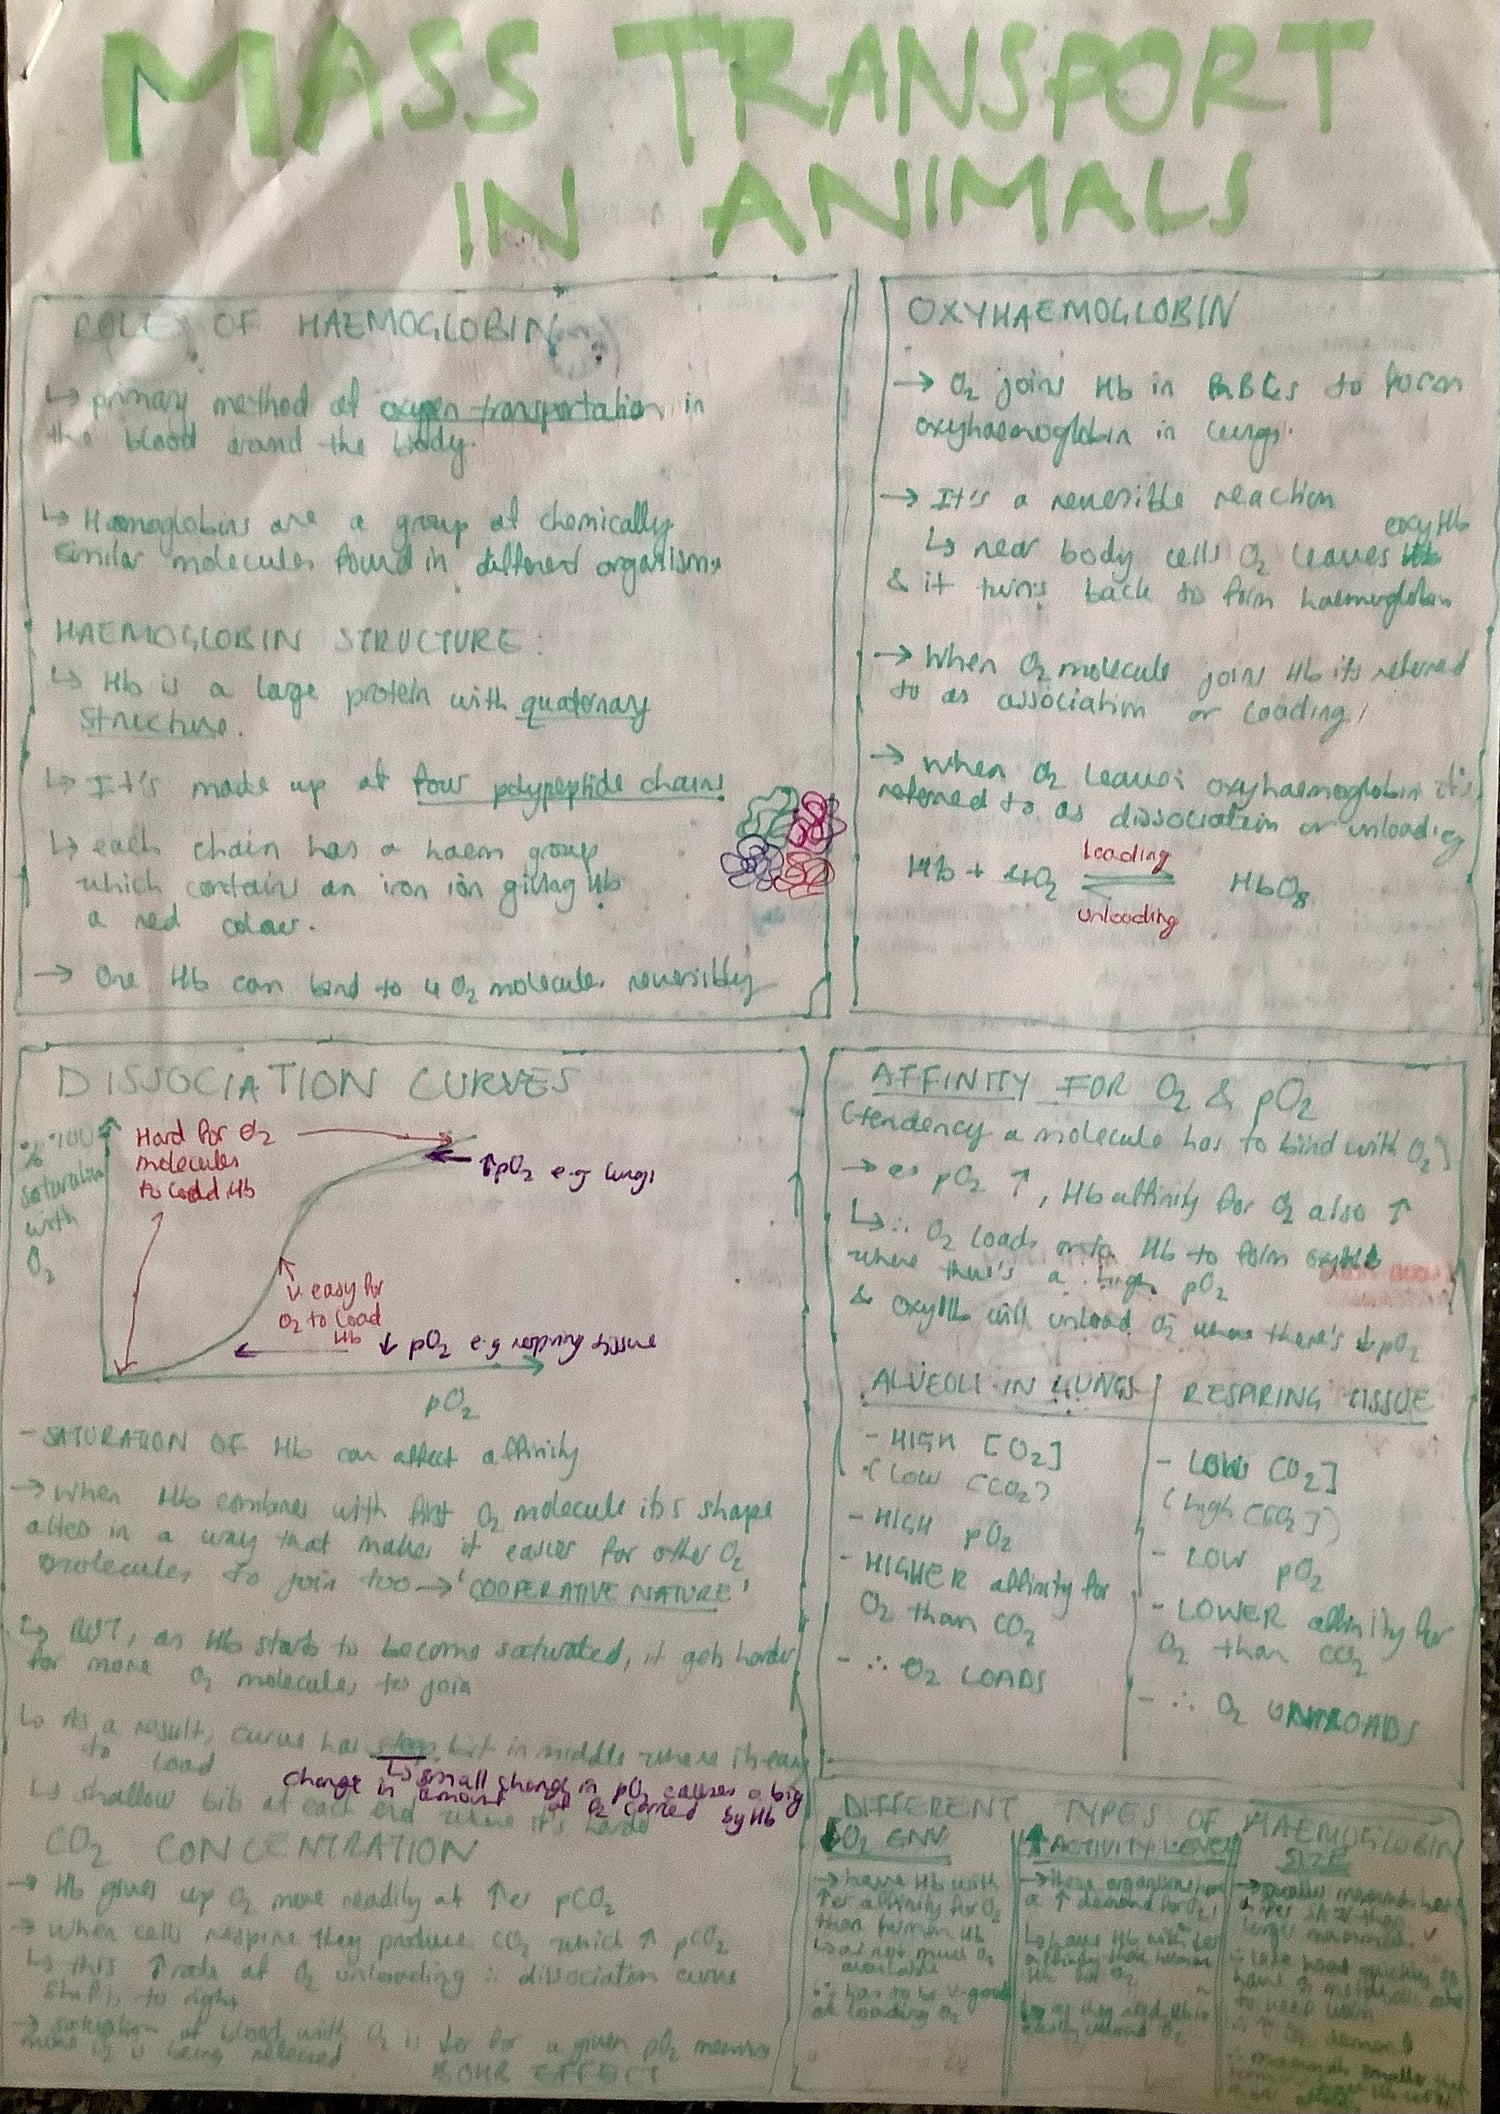 MASS TRANSPORT
IN ANIMALS
ROLE OF HAEMOGLOBIN
↳ primary method of oxygen transportation in
the blood around the body.
↳ Haemoglobins are a group of chemically
similar molecules found in different organisms
HAEMOGLOBIN STRUCTURE:
↳ Hb is a large protein with quaternary
structure.
↳ It's made up of four polypeptide chains
↳ each chain has a haem group
which contains an iron ion giving Hb
a red colour.
→ One Hb can bind to 4 O2 molecules reversibly
OXYHAEMOGLOBIN
→ O2 joins Hb in RBCs to form
oxyhaemoglobin in lungs.
→ It's a reversible reaction
↳ near body cells O2 leaves oxyHb
& it turns back to form haemoglobin
→ When O2 molecule joins Hb its referred
to as association or loading
→ when O2 leaves oxyhaemoglobin it's
referred to as dissociation or unloading
loading
Hb + 4O2 ⇌ HbO8
unloading
DISSOCIATION CURVES
% 100
saturation
with
O2
Hard for O2
molecules
to load Hb
↑pO2 e.g lungs
v easy for
O2 to load
Hb
↓ pO2 e.g respiring tissue
pO2
- SATURATION OF Hb can affect affinity
→ When Hb combines with first O2 molecule its shape
alters in a way that makes it easier for other O2
molecules to join too → 'COOPERATIVE NATURE'
↳ BUT, as Hb starts to become saturated, it gets harder
for more O2 molecules to join
↳ As a result, curve has steep bit in middle where its easy
to load
↳ small change in pO2 causes a big
change in amount of O2 carried by Hb
↳ shallow bits at each end where it's harder
CO2 CONCENTRATION
→ Hb gives up O2 more readily at ↑er pCO2
→ When cells respire they produce CO2 which ↑ pCO2
↳ this ↑ rate of O2 unloading ∴ dissociation curve
shifts to right
→ saturation of blood with O2 is ↓er for a given pO2 meaning
more O2 is being released
BOHR EFFECT
AFFINITY FOR O2 & pO2
(tendency a molecule has to bind with O2)
→ as pO2 ↑, Hb affinity for O2 also ↑
↳ ∴ O2 loads onto Hb to form oxyHb
where there's a high pO2
& oxyHb will unload O2 where there's ↓pO2
ALVEOLI IN LUNGS
- HIGH [O2]
(low [CO2])
- HIGH pO2
- HIGHER affinity for
O2 than CO2
- ∴ O2 LOADS
RESPIRING TISSUE
- LOW [O2]
(high [CO2])
- LOW pO2
- LOWER affinity for
O2 than CO2
- ∴ O2 UNLOADS
DIFFERENT TYPES OF HAEMOGLOBIN
↓O2 ENV
→ have Hb with
↑er affinity for O2
than human Hb
↳ as not much O2
available
↳ ∴ has to be v. good
at loading O2
↑ACTIVITY LEVEL
→ these organisms have
a ↑ demand for O2
↳ have Hb with ↓er
affinity than human
Hb for O2
↳ as they need
easily unload O2
SIZE
→ smaller mammals have
↑er SA:V than
larger mammals
∴ lose heat quickly so
have ↑ metabolic rate
to keep warm
∴ ↑ O2 demand